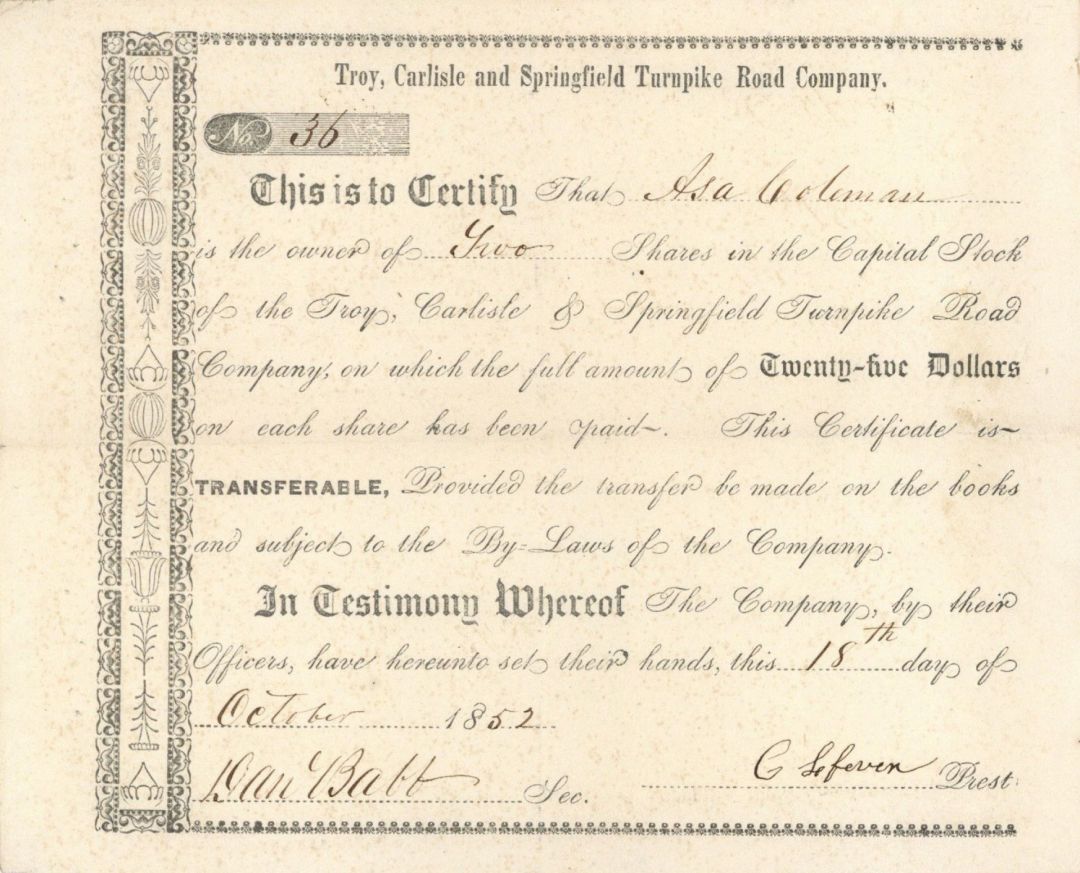 Troy, Carlisle and Springfield Turnpike Road Company.
No. 36
This is to Certify That Asa Coleman
is the owner of Two Shares in the Capital Stock
of the Troy, Carlisle & Springfield Turnpike Road
Company, on which the full amount of Twenty-five Dollars
on each share has been paid. This Certificate is
TRANSFERABLE, Provided the transfer be made on the books
and subject to the By-Laws of the Company.
In Testimony Whereof The Company, by their
Officers, have hereunto set their hands, this 18th day of
October 1852
Dan Babb Sec. C Lefeven Prest.